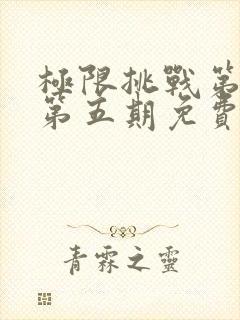 極限挑戰第
第五期免費
青霖之靈